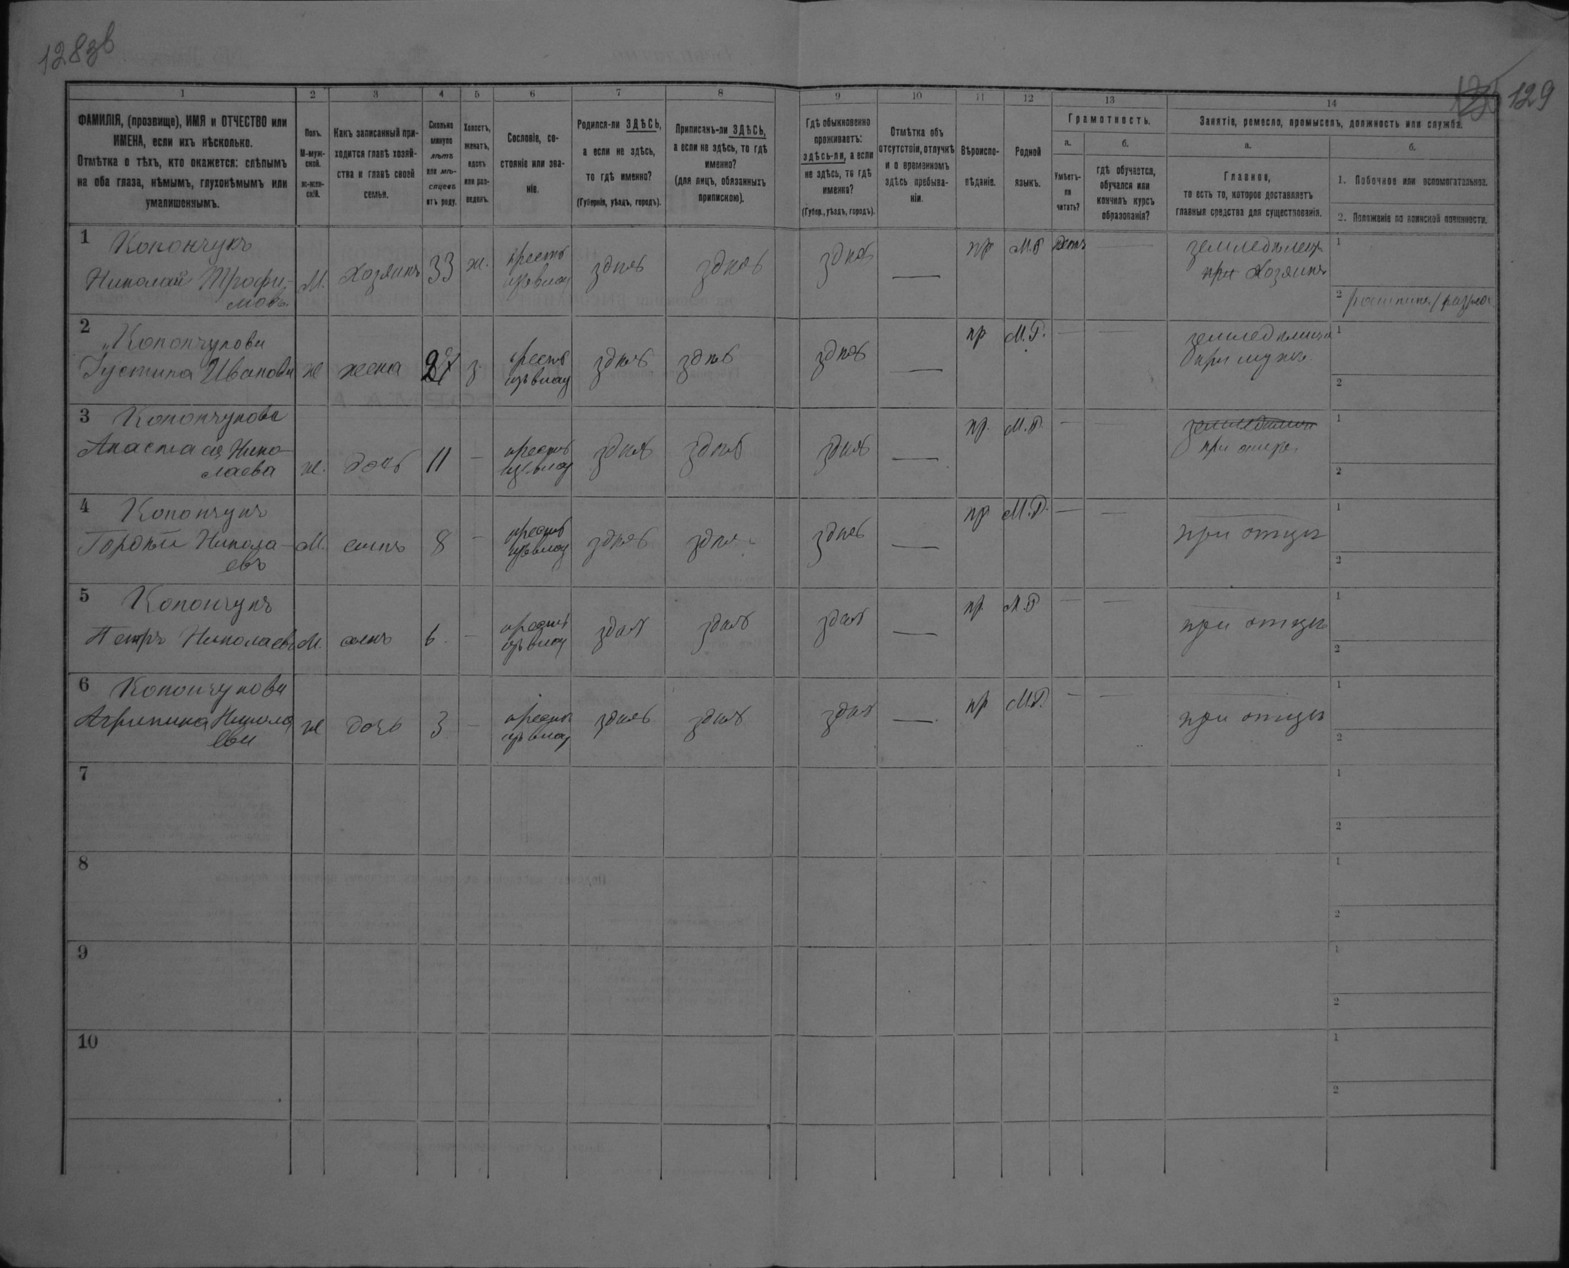 128зв
129
1 2 3 4 5 6 7 8 9 10 11 12 13 14
ФАМИЛІЯ, (прозвище), ИМЯ и ОТЧЕСТВО или
ИМЕНА, если ихъ нѣсколько.
Отмѣтка о тѣхъ, кто окажется: слѣпымъ
на оба глаза, нѣмымъ, глухонѣмымъ или
умалишеннымъ.
Полъ.
М-муж-
ской.
Ж-жен-
скій.
Какъ записанный при-
ходится главѣ хозяй-
ства и главѣ своей
семьи.
Сколько
минуло
лѣтъ
или мѣ-
сяцевъ
отъ роду.
Холостъ,
женатъ,
вдовъ
или раз-
веденъ.
Сословіе, со-
стояніе или зва-
ніе.
Родился-ли ЗДѢСЬ,
а если не здѣсь,
то гдѣ именно?
(Губернія, уѣздъ, городъ).
Приписанъ-ли ЗДѢСЬ,
а если не здѣсь, то гдѣ
именно?
(для лицъ, обязанныхъ
припискою).
Гдѣ обыкновенно
проживаетъ:
здѣсь-ли, а если
не здѣсь, то гдѣ
именно?
(Губер., уѣздъ, городъ).
Отмѣтка объ
отсутствіи, отлучкѣ
и о временномъ
здѣсь пребыва-
ніи.
Вѣроиспо-
вѣданіе.
Родной
языкъ.
Грамотность.
а.
Умѣетъ-
ли
читать?
б.
Гдѣ обучается,
обучался или
кончилъ курсъ
образованія?
Занятіе, ремесло, промыселъ, должность или служба.
а.
Главное,
то есть то, которое доставляетъ
главныя средства для существованія.
б.
1. Побочное или вспомогательное.
2. Положеніе по воинской повинности.
1 Копончукъ
Николай Трофи-
мовъ М. Хозяинъ 33 ж. здѣсь здѣсь здѣсь — пр М.Р — земледѣлец
при хозяинъ
1
2
2 Копончукова
Іустина Иванова ж жена з здѣсь здѣсь здѣсь — пр М.Р. — — при мужѣ
1
2
3 Копончукова
Анастасія Нико-
лаева ж. дочь 11 — здѣсь здѣсь здѣсь — пр М.Р. — при отцѣ
1
2
4 Копончукъ
Гордѣй Никола-
евъ М. сынъ 8 — здѣсь здѣсь здѣсь — пр М.Р. — — при отцѣ
1
2
5 Копончукъ
Петръ Николаевъ М. сынъ 6 — здѣсь здѣсь здѣсь — пр М.Р — — при отцѣ
1
2
6 Копончукова
Агрипина Никола
ева ж дочь 3 — здѣсь здѣсь здѣсь — пр М.Р. — — при отцѣ
1
2
7
1
2
8
1
2
9
1
2
10
1
2